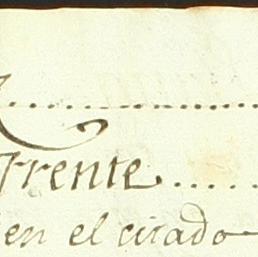 Frente......
en el citado